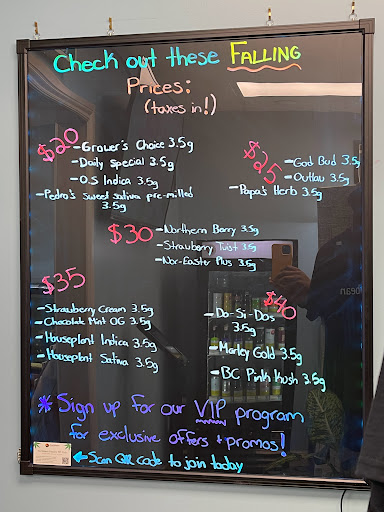 Check out these FALLING
Prices:
(taxes in!)
$20
-Grower's Choice 3.5g
-Daily Special 3.5g
-O.S Indica 3.5g
-Pedro's Sweet sativa pre-milled
3.5g
$25
-God Bud 3.5g
-Outlaw 3.5g
-Papa's Herb 3.5g
$30
-Northern Berry 3.5g
-Strawberry Twist 3.5g
-Nor-Easter Plus 3.5g
$35
-Strawberry Cream 3.5g
-Chocolate Mint OG 3.5g
-Houseplant Indica 3.5g
-Houseplant Sativa 3.5g
$40
-Do-Si-Dos
3.5g
-Marley Gold 3.5g
-BC Pink Kush 3.5g
* Sign up for our VIP program
for exclusive offers + promos!
←Scan QR code to join today